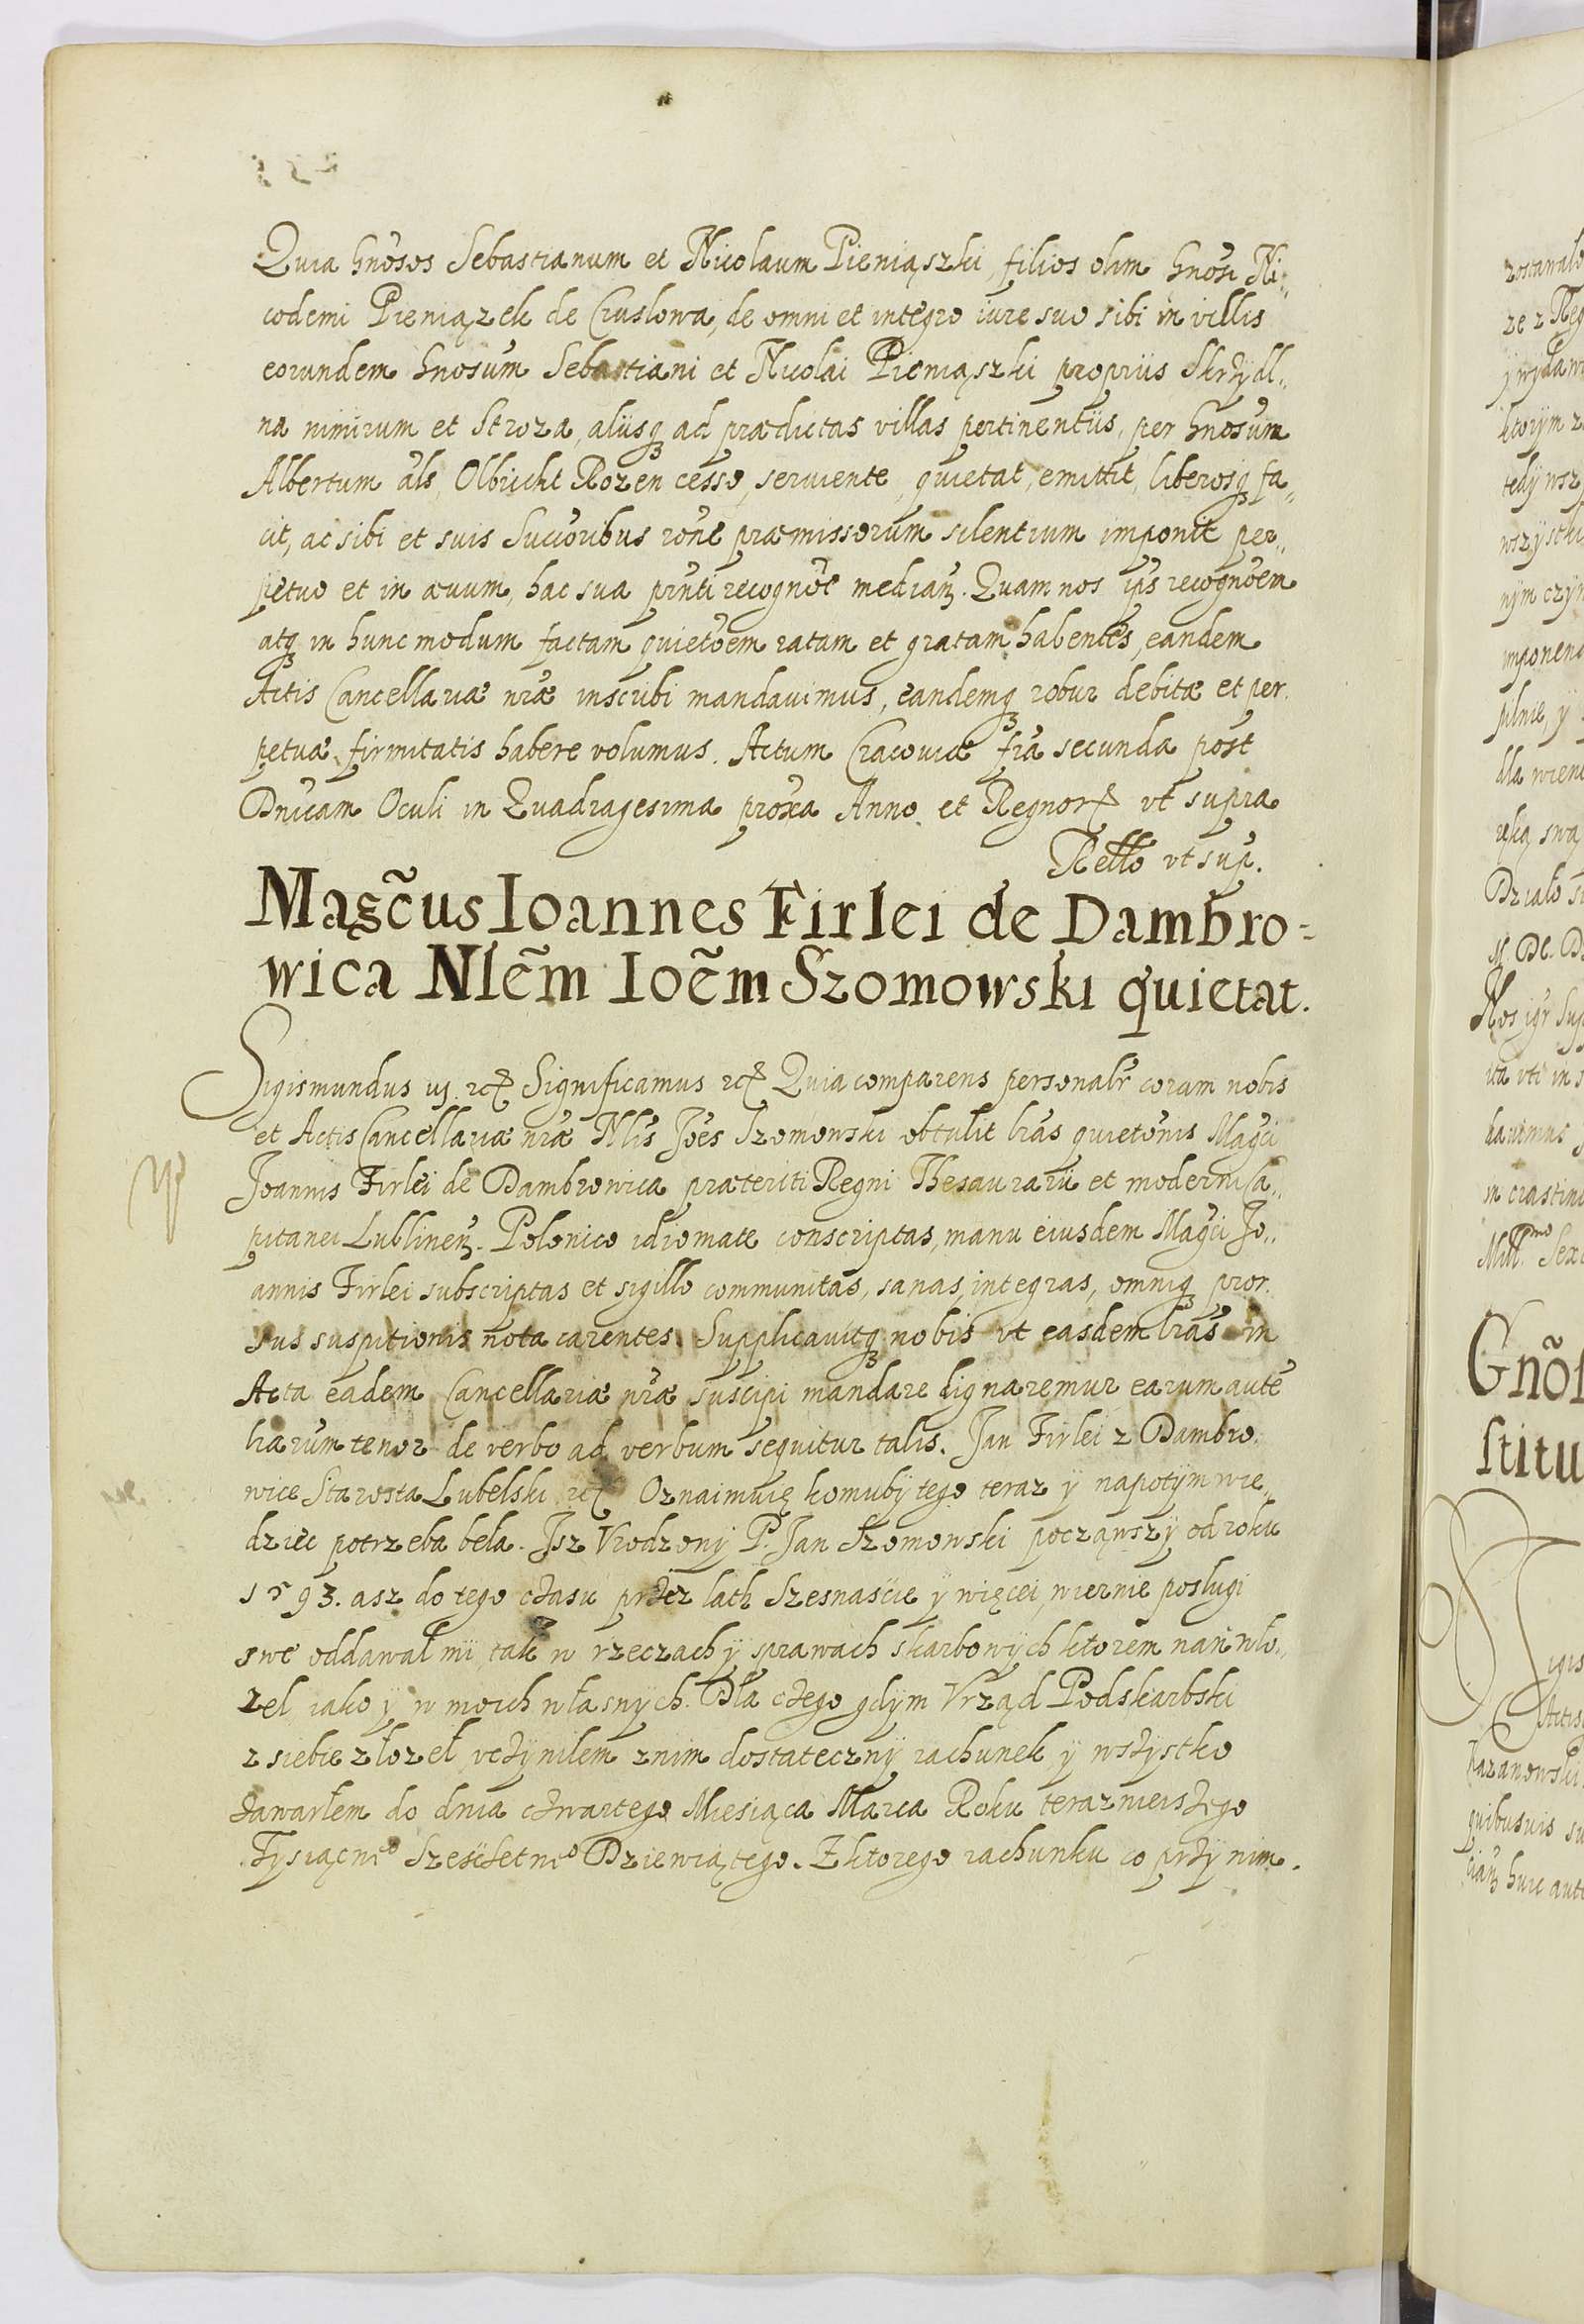 Quia Gnosos Sebastianum et Nicolaum Pieniąszki, filios olim Gnosi Ni„
codemi Pieniązek de Cruslowa, de omni et integro iure suo sibi in villis
eorundem Gnosum Sebastiani et Nicolai Pieniąszki proprijs Skrżydl„
na nimirum et Stroza, alijsq ad prædictas villas pertinentijs, per Gnosum
Albertum als Olbricht Rozen cesso, seruiente, quietat, emittit, liberosq fa„
cit, ac sibi et suis Succoribus rone præmissorum silentium imponit per„
petuo et in æuum, hac sua prnti recognoe median. Quam nos ips recognoem
atq in hunc modum factam quietoem ratam et gratam habentes, eandem
Actis Cancellariæ nræ inscribi mandauimus, eandemq robur debitæ et per
petuæ firmitatis habere volumus. Actum Cracouiæ fria secunda post
Dnicam Oculi in Quadragesima proxa Anno et Regnor vt supra
Rello vt sup.
Magcus Ioannes Firlei de Dambro-
wica Nlem Ioem Szomowski quietat.
Sigismundus iij. etc Significamus etc Quia comparens personalr coram nobis
et Actis Cancellariæ nræ Nlis Joes Szomowski obtulit lras quietonis Magci
Joannis Firlei de Dambrowica præteriti Regni Thesaurarij et moderni Ca„
pitanei Lublinen. Polonico idiomate conscriptas, manu eiusdem Magci Jo„
annis Firlei subscriptas et sigillo communitas, sanas, integras, omniq pror
sus suspitionis nota carentes. Supplicauitq nobis vt easdem lras in
Acta eadem Cancellariæ nræ suscipi mandare dignaremur earum aute
lrarum tenor de verbo ad verbum sequitur talis. Jan Firlei z Dambro
wice Starosta Lubelski etc Oznaimuię komuby tego teraz y napotym wie„
dziec potrzeba bela. Jsz Vrodzony P. Jan Szomowski począwszy od roku
1593. asz do tego cżasu prżez lath Szesnascie y więcei, wiernie poslugi
swe oddawał mi, tak w rzeczach y sprawach skarbowych ktorem nań wło„
zel iako y w moich własnych. Dla cżego gdym Vrząd Podskarbski
z siebie złozeł vcżynilem znim dostateczny rachunek y wszystko
żawarłem do dnia cżwartego Miesiąca Marca Roku teraznieiszego
Tysiącneo Szescżetneo Dziewiątego. Z ktorego rachunku co prży nim